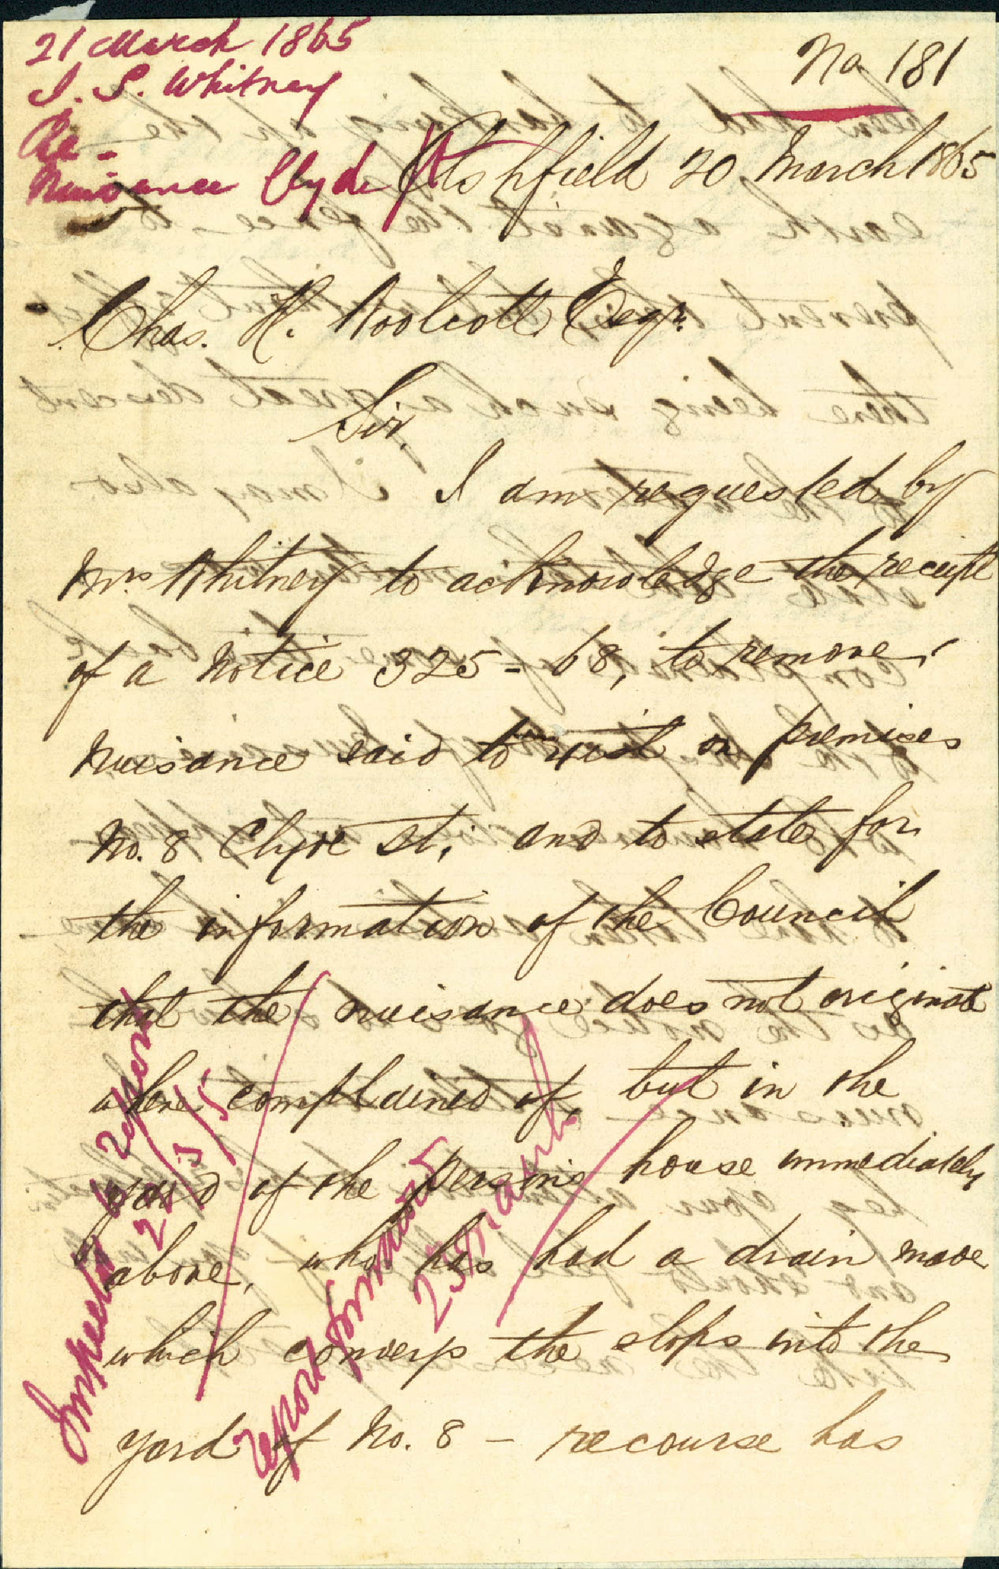 21 March 1865
J. S. Whitney
Re-
Nuisance Clyde St
No 181
Ashfield 20 March 1865
Chas. H. Woolcott Esqr.
Sir,
I am requested by
Mrs Whitney to acknowledge the receipt
of a Notice 325 = 68, to remove
Nuisance said to exist on premises
No. 8 Clyde St, and to state for
the information of the Council
that the nuisance does not originate
where complained of, but in the
yard of the persons house immediately
above, who has had a drain made
which conveys the slops into the
yard of No. 8 - recourse has
Inspector to report
report forward
23rd March